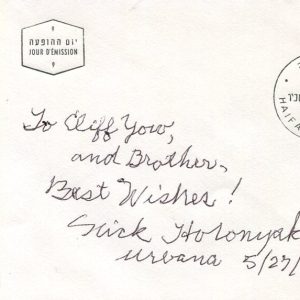 יום ההופעה
JOUR D'ÉMISSION
HAIF
To Cliff Yow,
and Brother,
Best Wishes!
Nick Holonyak
Urbana 5/27/